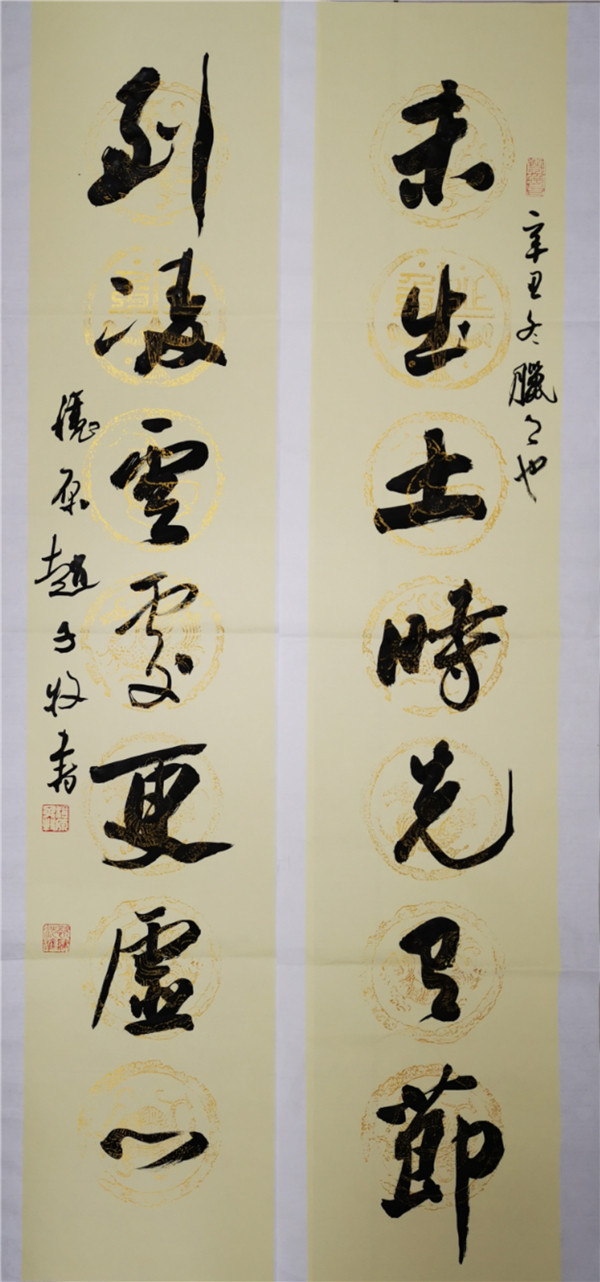 辛丑冬臘之也
未出土時先有節
到凌雲處更虛心
趙子牧書